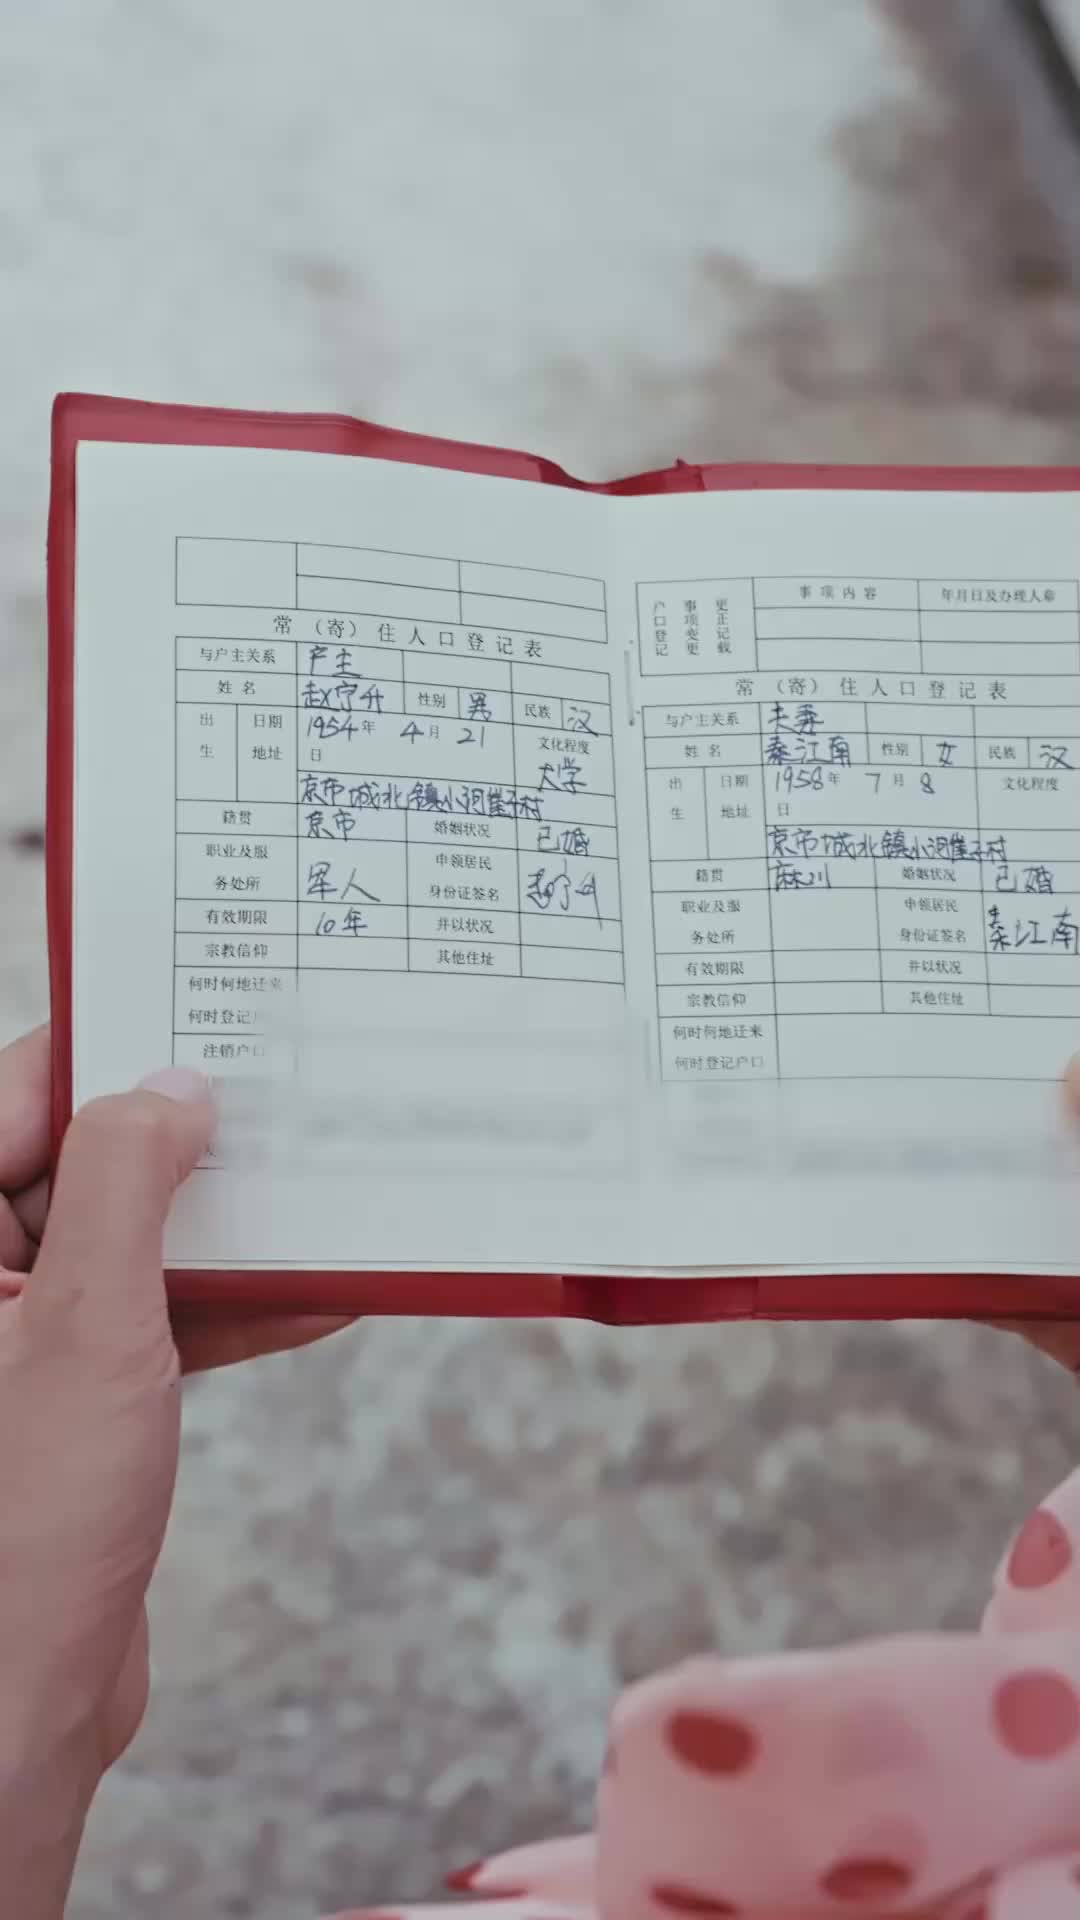 常（寄）住人口登记表
与户主关系 户主
姓名 赵宁升 性别 男 民族 汉
出生 日期 1954年 4月 21日 文化程度 大学
地址 京市城北镇小河崖子村
籍贯 京市 婚姻状况 已婚
职业及服务处所 军人 申领居民身份证签名
有效期限 10年 并以状况
宗教信仰 其他住址
何时何地迁来
何时登记户
注销户口
户口登记事项变更更正记载 事项内容 年月日及办理人章
常（寄）住人口登记表
与户主关系 夫妻
姓名 秦江南 性别 女 民族 汉
出生 日期 1958年 7月 8日 文化程度
地址 京市城北镇小河崖子村
籍贯 麻川 婚姻状况 已婚
职业及服务处所 申领居民身份证签名 秦江南
有效期限 并以状况
宗教信仰 其他住址
何时何地迁来
何时登记户口